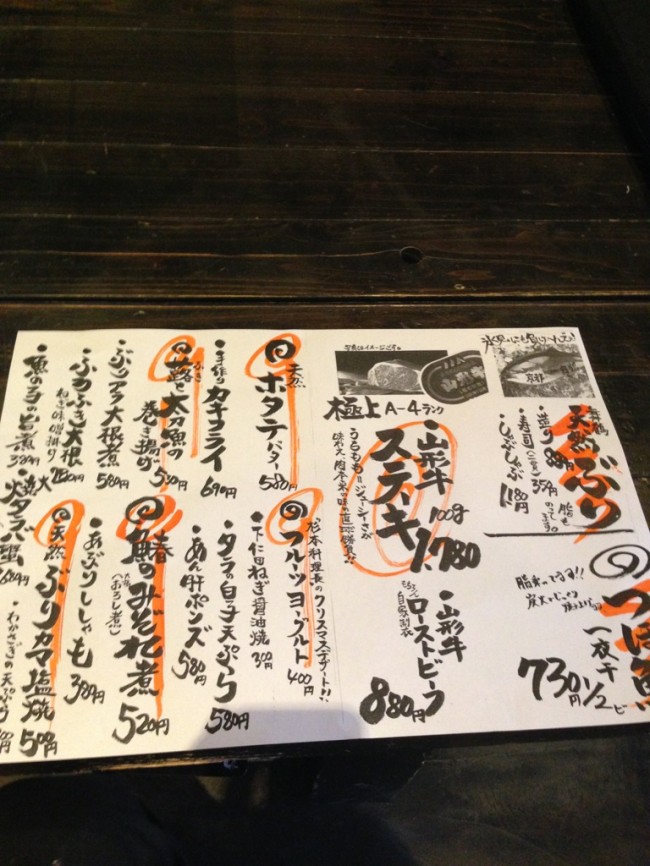 氷見にも負けへんで!
京都
舞鶴
天然ぶり
・造り 880円
・寿司(二貫) 350円
・しゃぶしゃぶ 1180円
脂も
のってます。
つぼ鯛
一枚干
1/2ビ
730円
脂のってます!!
写真はイメージです。
極上 A-4ランク
・山形牛
ステーキ
100g
1,780
うちもも=ジューシーさが
・山形牛
ローストビーフ
自家製
880円
天然
ホタテバター
580円
・手作り カキフライ
690円
蕗と太刀魚の
巻き揚げ
530円
・ぶりアラ大根煮
580円
・ふろふき大根
ねぎ味噌掛け
・魚のコの旨煮
380円
杉本料理長のクリスマスデザート!!
フルツヨーグルト
400円
・下仁田ねぎ醤油焼
300円
・タラの白子天ぷら
580円
・あん肝ポンズ
580円
鰆のみぞれ煮
(おろし煮)
520円
・あぶりししゃも
380円
天然
ぶりカマ塩焼
500円
・わかさぎの天ぷら